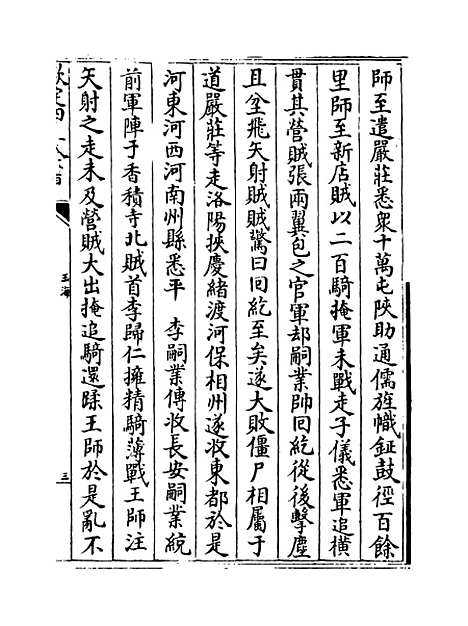 師至遣嚴莊悉衆十萬屯陜助通儒旌幟鉦鼓徑百餘
里師至新店賊以二百騎掩軍未戰走子儀悉軍追橫
貫其營賊張兩翼包之官軍却嗣業帥回紇從後擊塵
且坌飛矢射賊賊驚曰回紇至矣遂大敗僵尸相屬于
道嚴莊等走洛陽挾慶緒渡河保相州遂收東都於是
河東河西河南州縣悉平 李嗣業傳收長安嗣業統
前軍陣于香積寺北賊首李歸仁擁精騎薄戰王師注
矢射之走未及營賊大出掩追騎還蹂王師於是亂不
玉海
三